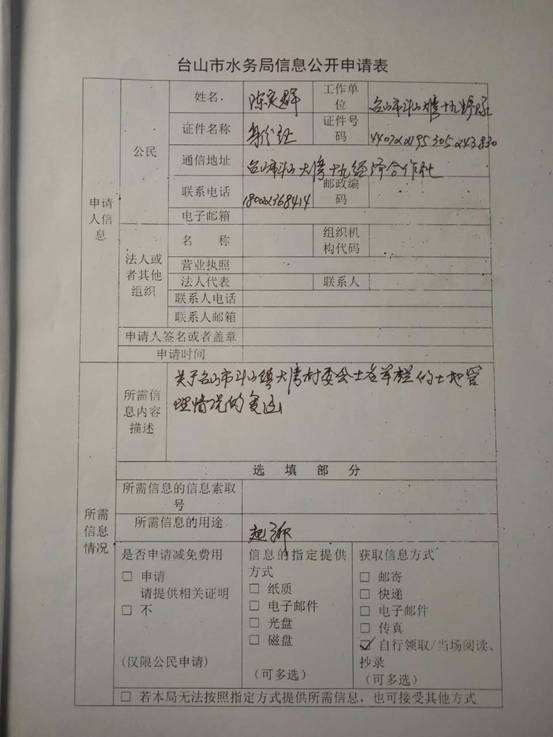 台山市水务局信息公开申请表
申请人信息
公民
姓名
工作单位
台山市斗山
证件名称
身份证
证件号码
通信地址
台山市斗山大湾十九经济合作社
联系电话
邮政编码
电子邮箱
法人或者其他组织
名 称
组织机构代码
营业执照
法人代表
联系人
联系人电话
联系人邮箱
申请人签名或者盖章
申请时间
所需信息情况
所需信息内容描述
关于台山市斗山镇大湾村委会
理情况的
选 填 部 分
所需信息的信息索取号
所需信息的用途
起诉
是否申请减免费用
□ 申请
请提供相关证明
□ 不
(仅限公民申请)
信息的指定提供方式
□ 纸质
□ 电子邮件
□ 光盘
□ 磁盘
(可多选)
获取信息方式
□ 邮寄
□ 快递
□ 电子邮件
□ 传真
☑ 自行领取/当场阅读、抄录
(可多选)
□ 若本局无法按照指定方式提供所需信息，也可接受其他方式